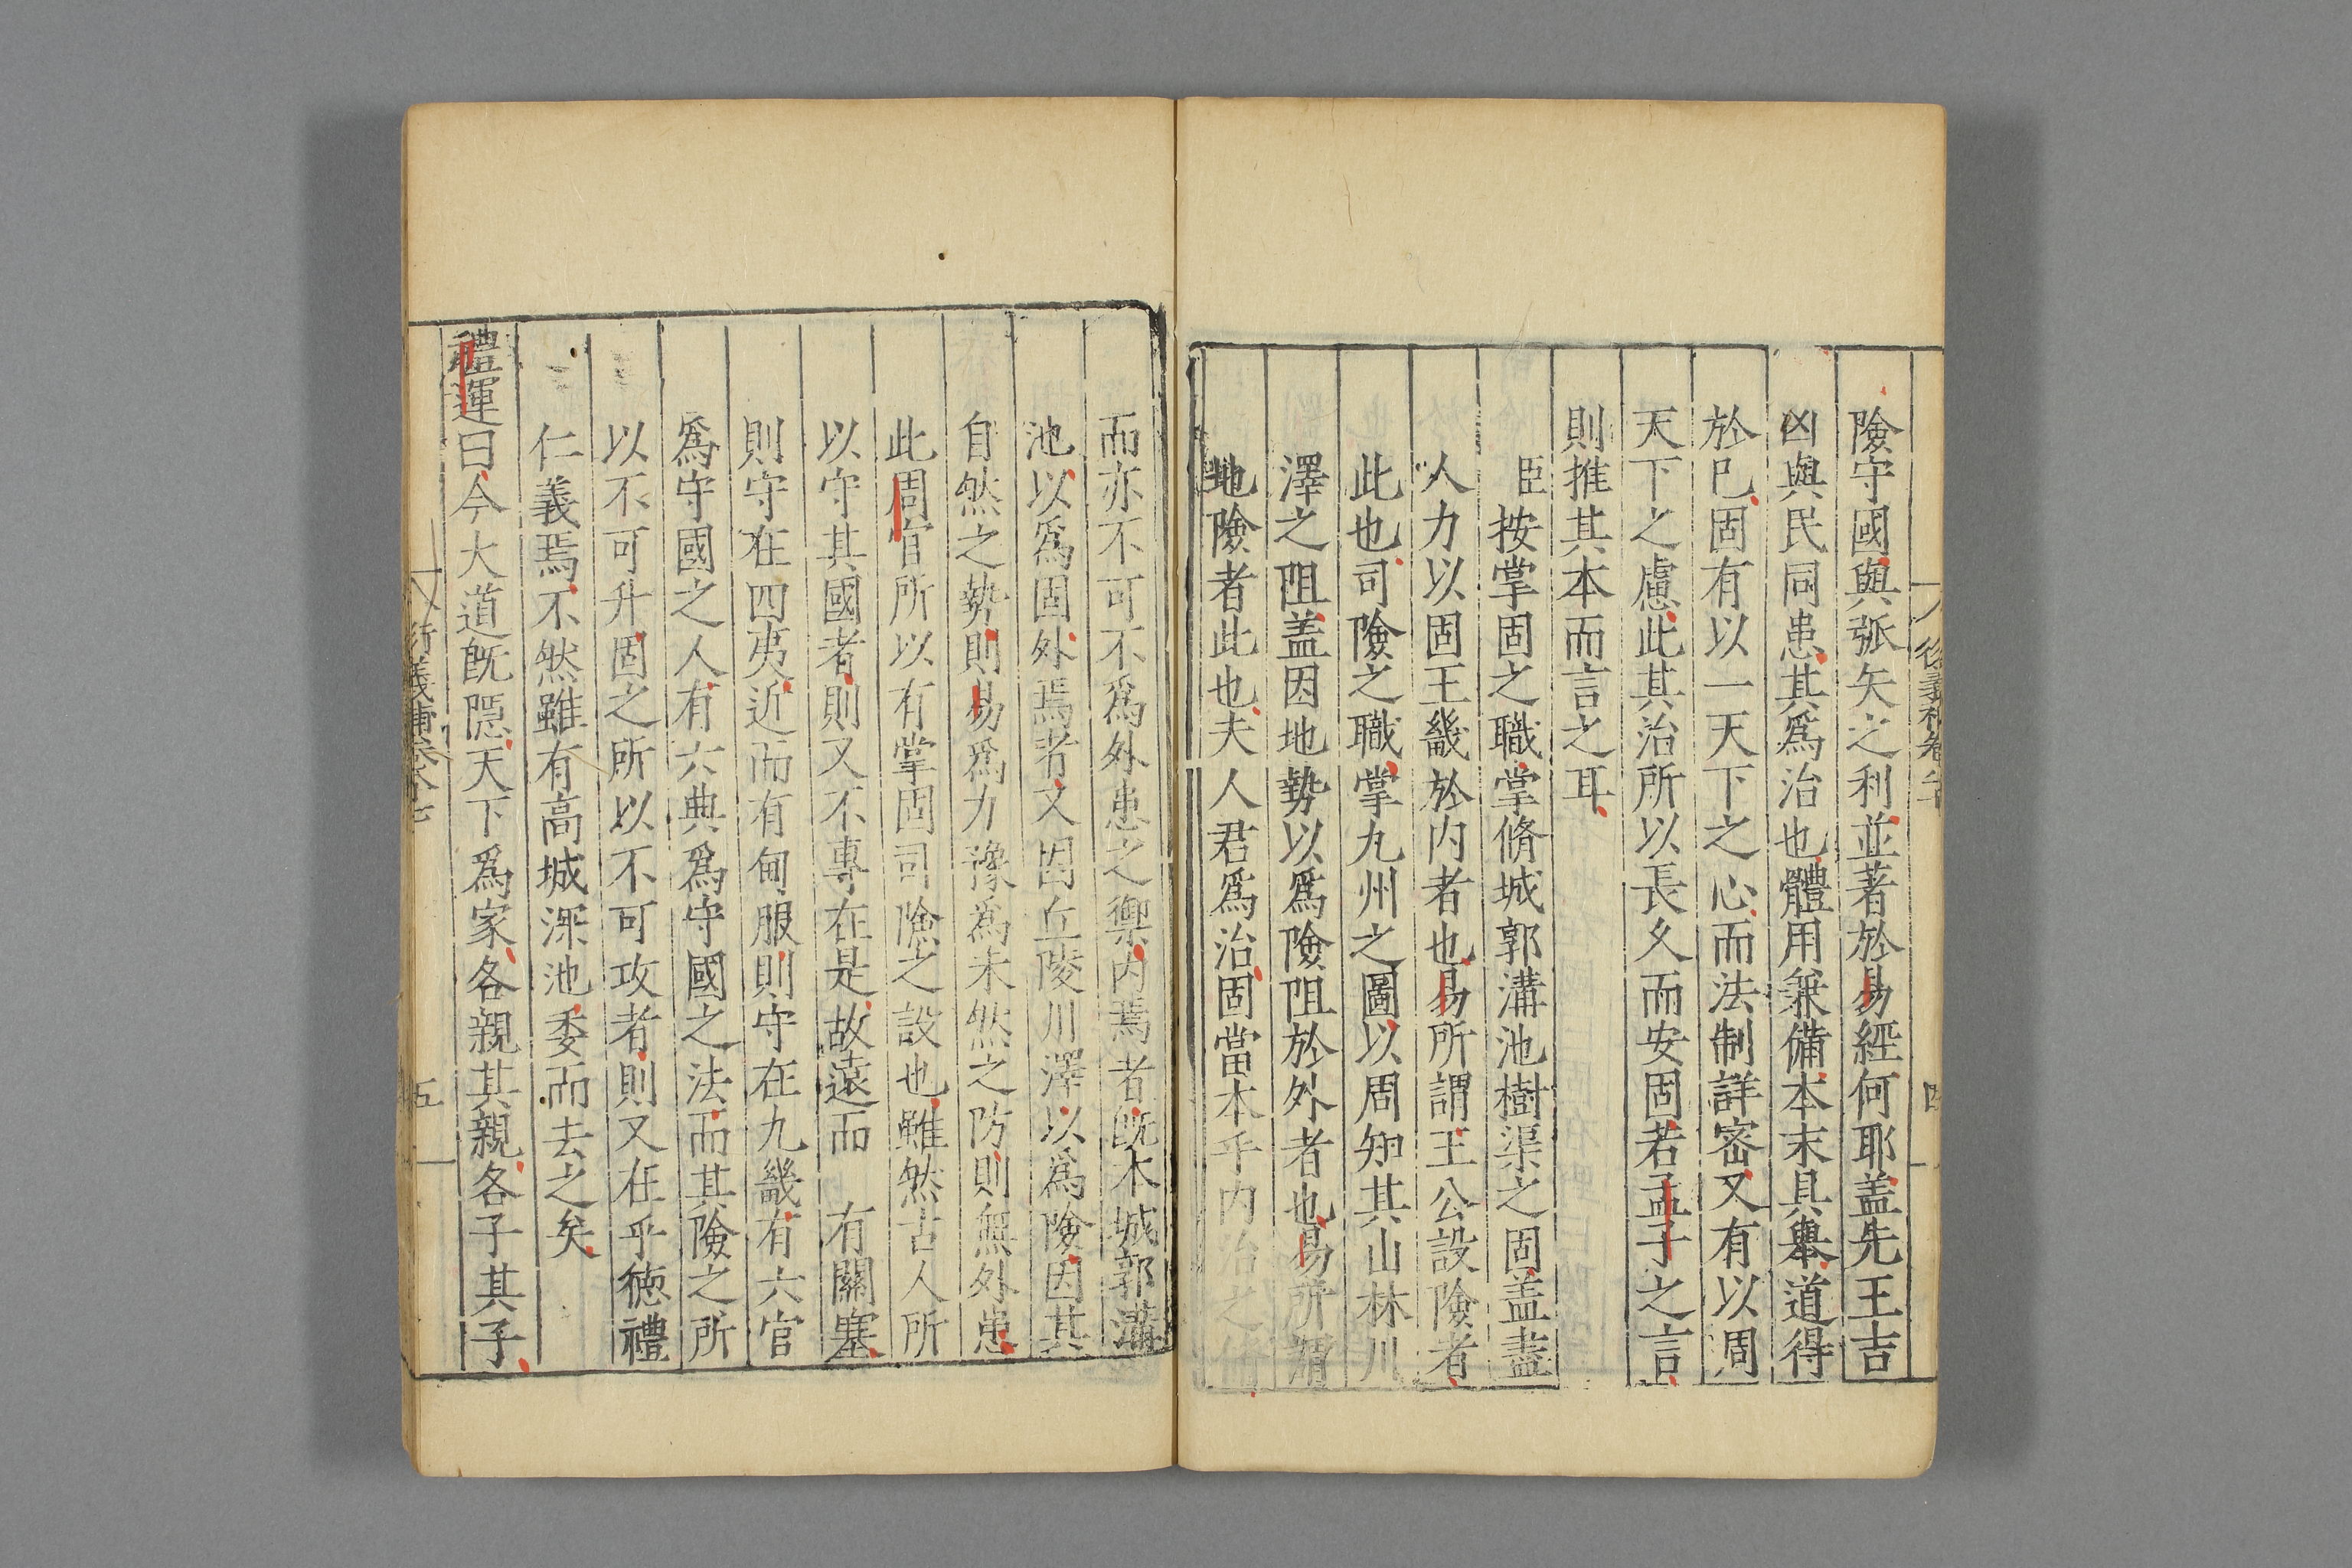 險守國與弧矢之利並著於易經何耶盖先王吉
凶與民同患其爲治也體用兼備本末具舉道得
於已固有以一天下之心而法制詳密又有以周
天下之慮此其治所以長久而安固若孟子之言
則推其本而言之耳
臣按掌固之職掌脩城郭溝池樹渠之固盖盡
人力以固王畿於内者也易所謂王公設險者
此也司險之職掌九州之圖以周知其山林川
澤之阻盖因地勢以爲險阻於外者也易所謂
地險者此也夫人君爲治固當本乎内治之脩
而亦不可不爲外患之禦内焉者旣木城郭溝
池以爲固外焉者又因丘陵川澤以爲險因其
自然之勢則易爲力豫爲未然之防則無外患
此周官所以有掌固司險之設也雖然古人所
以守其國者則又不專在是故遠而 有關塞
則守在四夷近而有甸服則守在九畿有六官
爲守國之人有六典爲守國之法而其險之所
以不可升固之所以不可攻者則又在乎徳禮
仁義焉不然雖有高城深池委而去之矣
禮運曰今大道旣隠天下爲家各親其親各子其子
衍義補卷八十七
五